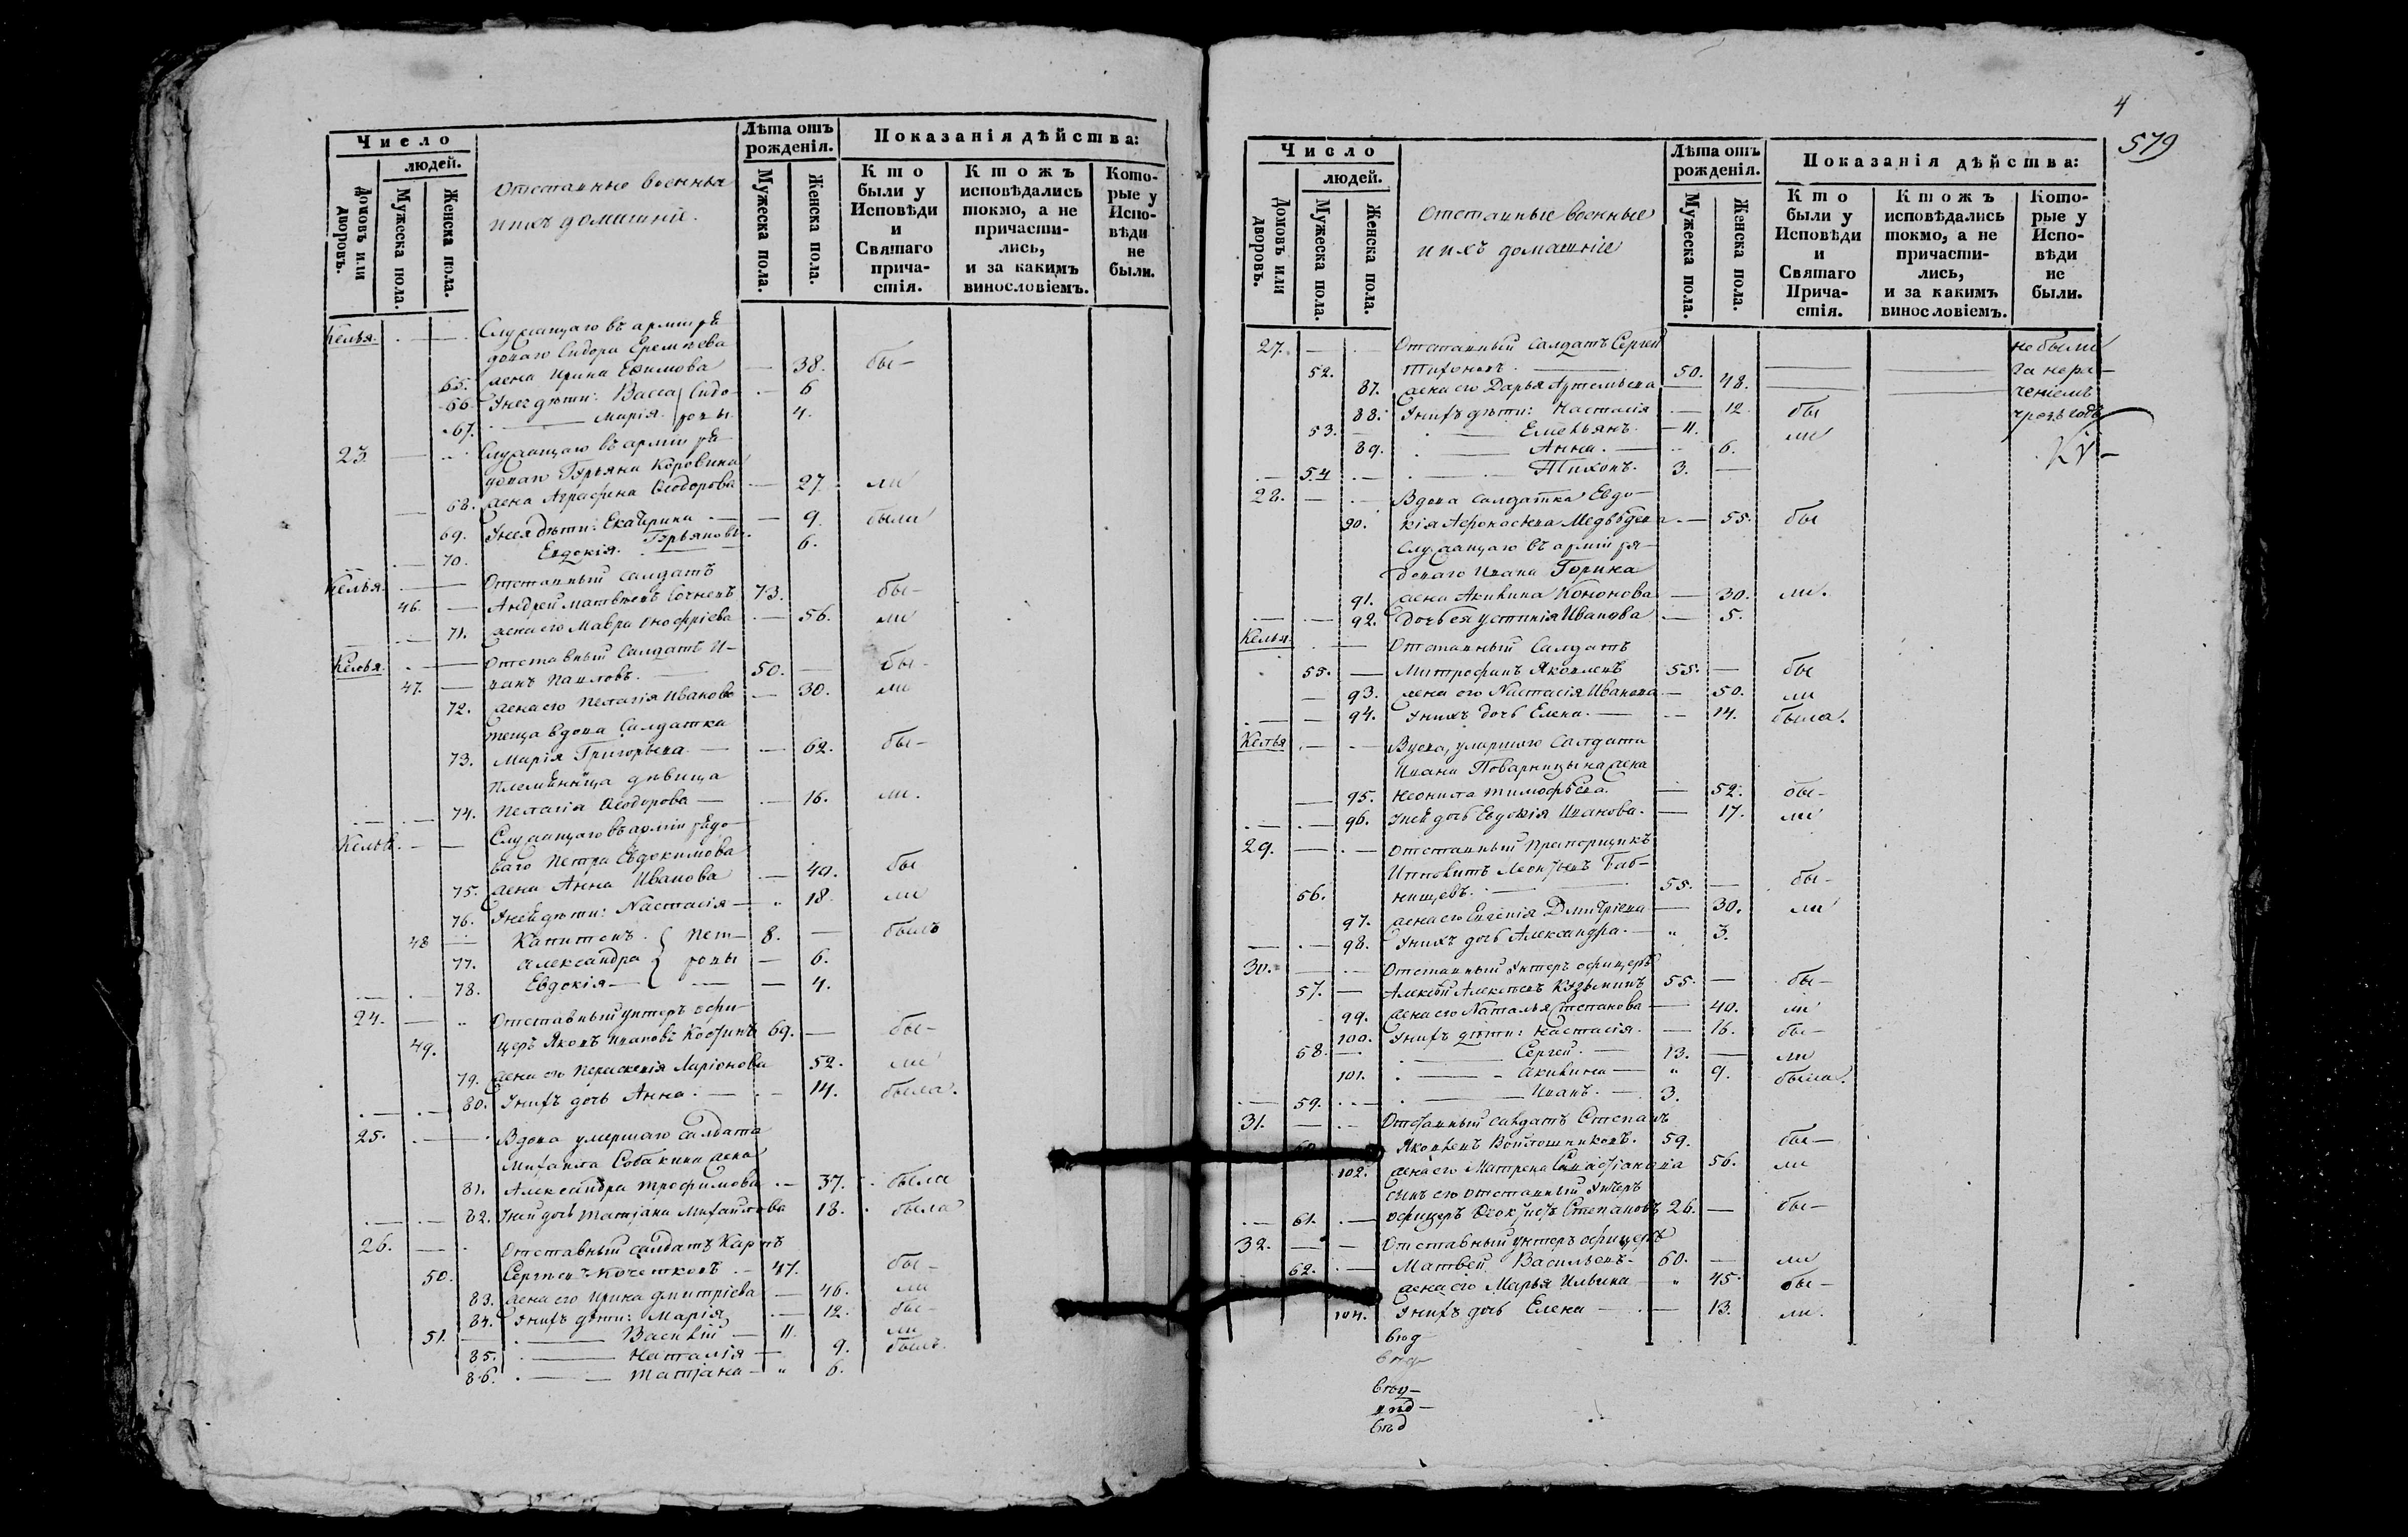 Число
людей.
Домовъ или дворовъ.
Мужеска пола.
Женска пола.
Отставные военныя
и ихъ домашніе.
Лѣта отъ рожденія.
Мужеска пола.
Женска пола.
Показанія дѣйства:
Кто были у Исповѣди и Святаго причастія.
Ктожъ исповѣдались токмо, а не причастились, и за какимъ винословіемъ.
Которые у Исповѣди не были.
Келья. Служащаго въ арміи ря-
доваго Сидора Еремѣева
65. жена Ирина Ефимова — 38. бы-
66. У нея дѣти: Васса Сидо- 6
67. Марія. ровы 4.
23 Служащаго въ арміи ря-
доваго Гурьяна Коровина
68. жена Аграфена Ѳеодорова — 27. ли
69. У нея дѣти: Екатерина — 9. была
70. Евдокія. Гурьяновы. 6.
Келья. Отставный салдатъ
46. — Андрей Матвѣевъ 73. бы-
71. жена его Мавра Онофріева — 56. ли
Келья Отставный Салдатъ И-
47. — ванъ Павловъ. 50. — бы-
72. жена его Пелагія Иванова — 30. ли
теща вдова Салдатка
73. Марія Григорьева — 62. бы-
Племянница дѣвица
74. Пелагія Ѳеодорова — 16. ли.
Келья. Служащаго въ арміи рядо-
ваго Петра Евдокимова
75. жена Анна Иванова — 40. бы
76. У ней дѣти: Настасія — 18. ли
48 Капитонъ. Пет- 8. — былъ
77. Александра ровы — 6.
78. Евдокія — 4.
24. Отставный унтеръ офи-
49. церъ Яковъ Ивановъ 69. — бы-
79. жена его Параскевія Ларіонова 52. ли
80. У нихъ дочь Анна. — 14. была.
25. Вдова умершаго салдата
Михаила Собакина жена
81. Александра Трофимова — 37. была
82. У ней дочь Татіана Михаилова 18. была
26. Отставный салдатъ Карпъ
50. Сергѣевъ Кочетковъ — 47. бы-
83. жена его Ирина Дмитріева — 46. ли
84. У нихъ дѣти: Марія — 12. бы-
51. — Василій — 11. ли
85. — Наталія — 9. былъ.
86. — Татіана — 6.
4
579
Число
людей.
Домовъ или дворовъ.
Мужеска пола.
Женска пола.
Отставные военные
и ихъ домашніе
Лѣта отъ рожденія.
Мужеска пола.
Женска пола.
Показанія дѣйства:
Кто были у Исповѣди и Святаго Причастія.
Ктожъ исповѣдались токмо, а не причастились, и за какимъ винословіемъ.
Которые у Исповѣди не были.
27. Отставный салдатъ Сергей не были
52. 50. за нера-
87. жена его Дарья — 48. ченіемъ
88. У нихъ дѣти: Настасія — 12. бы чрезъ годъ
53. Емельянъ. — 11. ли
89. Анна. — 6.
54 Тихонъ. 3. —
28. Вдова салдатка Евдо-
90. кія Афонасьева Медвѣдева — 55. бы
Служащаго въ арміи ря-
доваго Ивана Горина
91. жена Акилина Кононова — 30. ли.
92. Дочь ея Устинія Иванова — 5.
Келья. Отставный Салдатъ
55. — Митрофанъ Яковлевъ 55. — бы
93. жена его Настасія Иванова — 50. ли
94. У нихъ дочь Елена. — 14. была.
Келья Вдова, умершаго салдата
Ивана жена
95. Неонила Тимофѣева. — 52. бы-
96. У ней дочь Евдокія Иванова. — 17. ли
29. Отставный Прапорщикъ
Ипполитъ Баб-
56. нищевъ. 55. — бы-
97. жена его Евгенія Дмитріева — 30. ли
98. У нихъ дочь Александра. — 3.
30. Отставный Унтеръ офицеръ
57. — Алексѣй Алексѣевъ Кузьминъ 55. — бы-
99. жена его Наталья Степанова — 40. ли
100. У нихъ дѣти: Настасія. — 16. бы-
58. — Сергей. 13. — ли
101. Акилина — 9. была.
59. Иванъ. — 3.
31. Отставный салдатъ Степанъ
Яковлевъ 59. бы-
102. жена его Матрена 56. ли
сынъ его отставный Унтеръ
61. — офицеръ Степановъ 26. — бы-
32. Отставный Унтеръ офицеръ
62. — Матвей Васильевъ. 60. — ли
жена его Марья Ильина — 45. бы-
104. У нихъ дочь Елена — 13. ли.